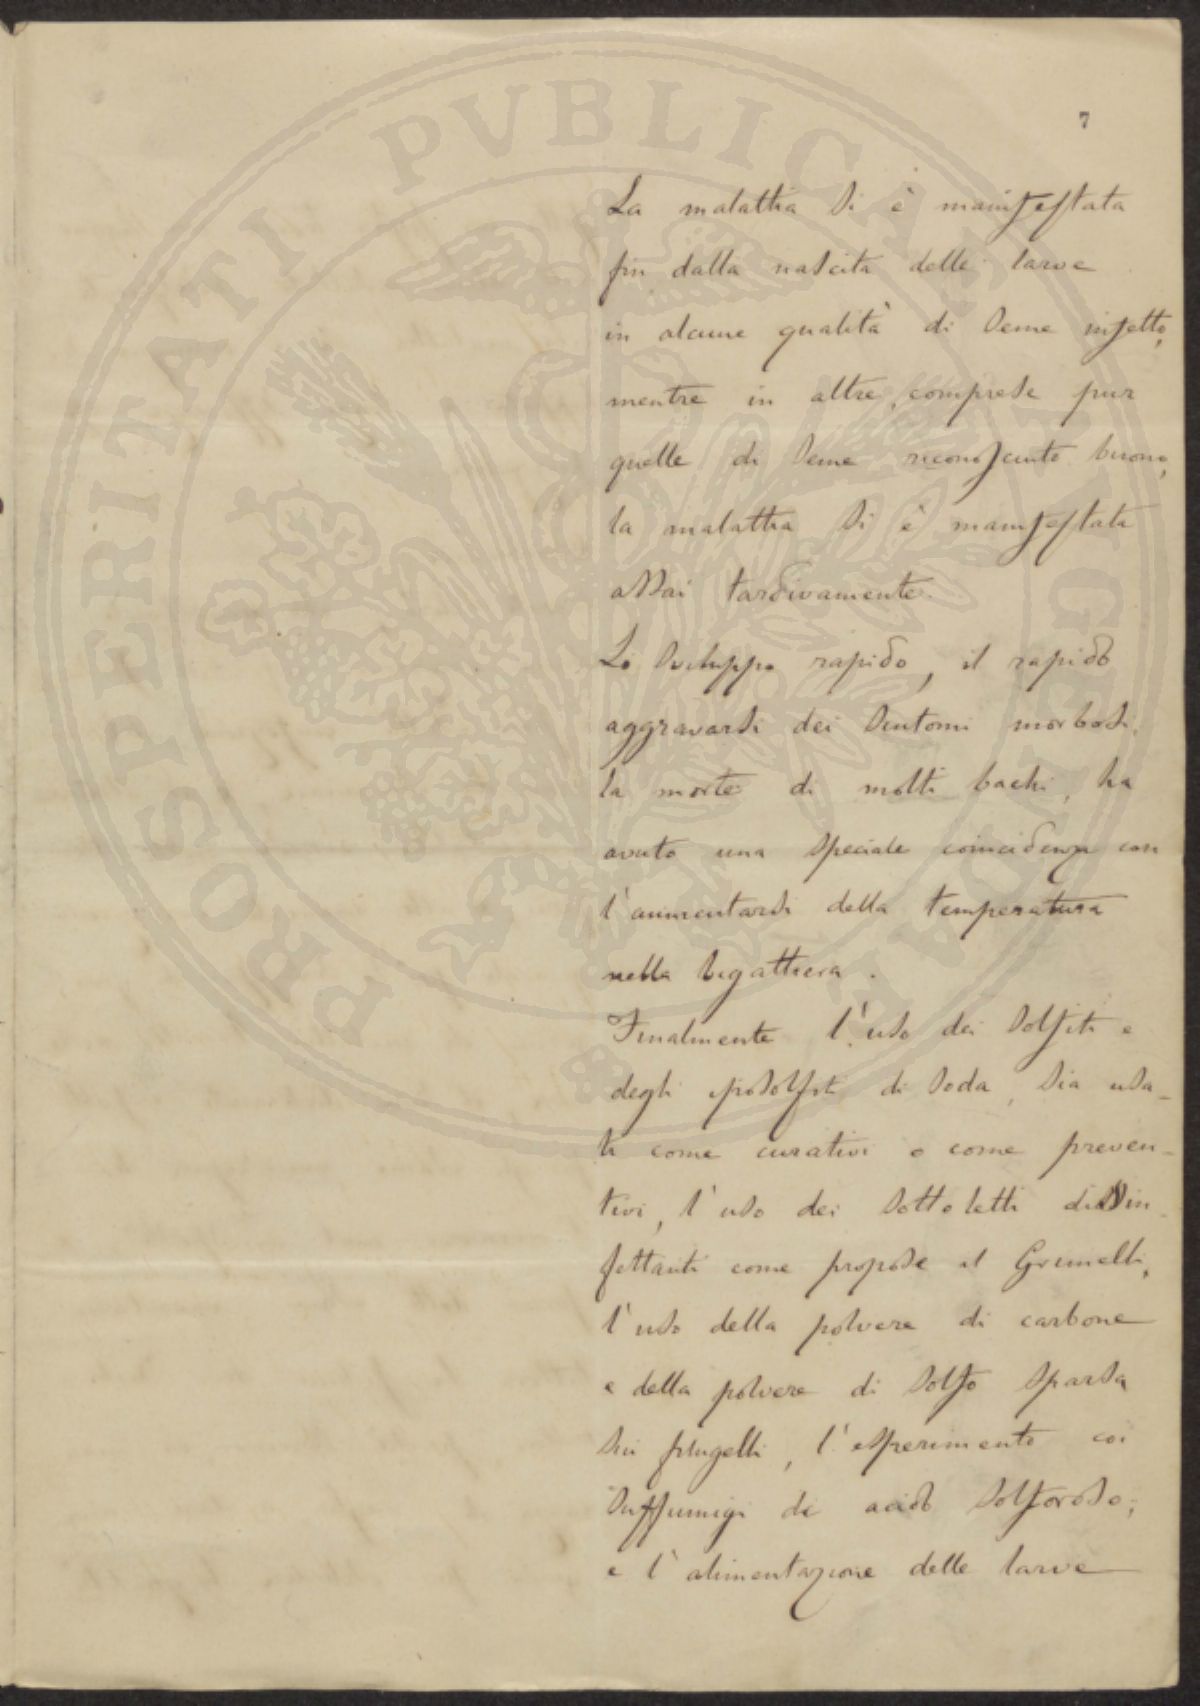 7
La malattia si è manifestata
fin dalla nascita delle larve
in alcune qualità di seme infetto,
mentre in altre, comprese pur
quelle di seme riconosciuto buono,
la malattia si è manifestata
assai tardivamente.
Lo sviluppo rapido, il rapido
aggravarsi dei sintomi morbosi,
la morte di molti bachi, ha
avuto una speciale coincidenza con
l'aumentarsi della temperatura
nella bigattiera.
Finalmente l'uso dei solfiti e
degli iposolfiti di soda, sia usa-
ti come curativi o come preven-
tivi, l'uso dei sotto letti dissin-
fettanti come propose il Grimelli,
l'uso della polvere di carbone
e della polvere di solfo sparsa
sui filugelli, l'esperimento coi
suffumigi di acido solforoso,
e l'alimentazione delle larve
PROSPERITATI PVBLICAE AVGENDAE